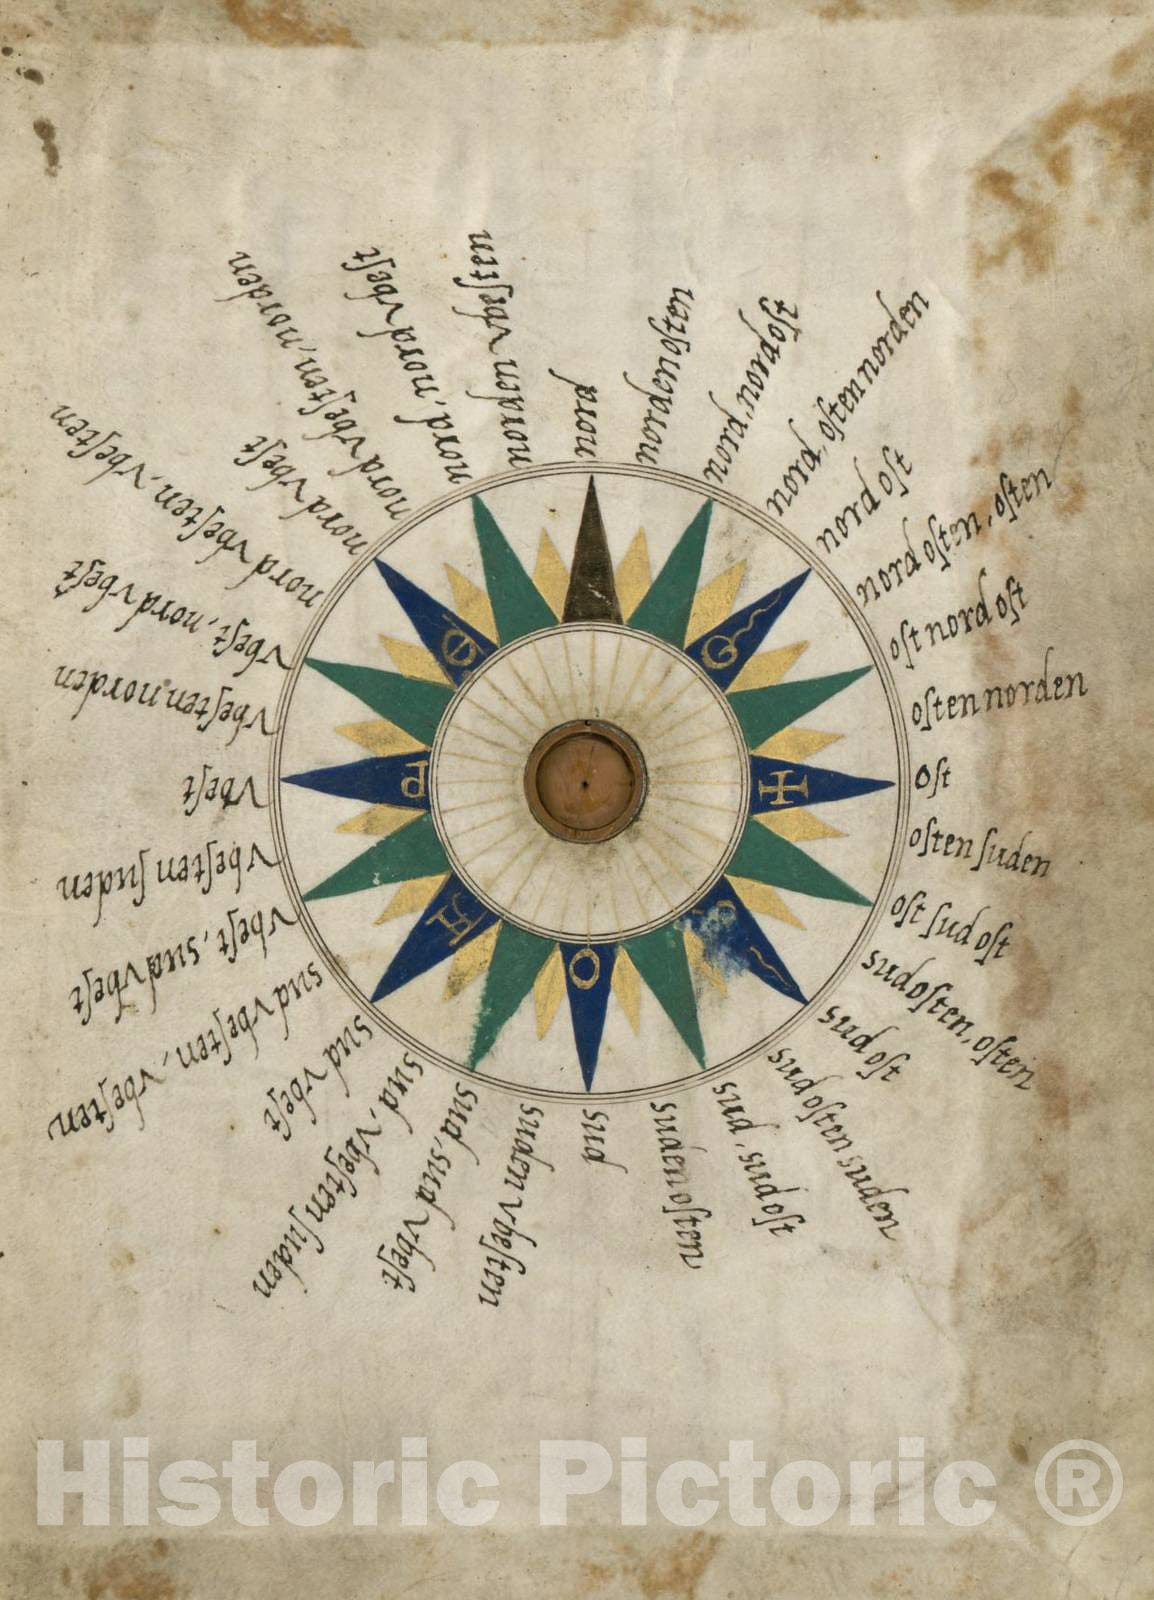 nord
nordenoſten
nord, nordoſt
nord, oſten norden
nord oſt
nord oſten, oſten
oſt nord oſt
oſten norden
Oſt
oſten ſuden
oſt ſud oſt
sudoſten, oſten
sud oſt
sud oſten suden
sud, sud oſt
suden oſten
sud
suden vbeſten
sud, sud vbeſt
sud, vbeſten ſuden
sud vbeſt
sud vbeſten, vbeſten
vbeſt, sud vbeſt
vbeſten ſuden
vbeſt
vbeſten norden
vbeſt, nord vbeſt
nord vbeſten, vbeſten
nord vbeſt
nord vbeſten, norden
nord, nord vbeſt
norden vbeſten
G
✠
S
O
A
P
Historic Pictoric ®